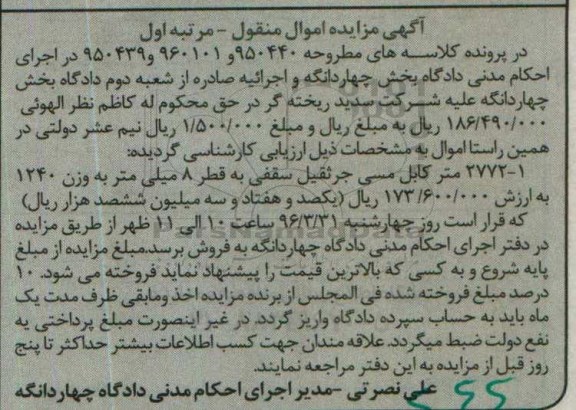 آگهی مزایده اموال منقول - مرتبه اول
در پرونده کلاسه های مطروحه ۹۵۰۴۴۰و ۹۶۰۱۰۱ و۹۵۰۴۳۹ در اجرای
احکام مدنی دادگاه بخش چهاردانگه و اجرائیه صادره از شعبه دوم دادگاه بخش
چهاردانگه علیه شرکت سدید ریخته گر در حق محکوم له کاظم نظر الهوئی
۱۸۶/۴۹۰/۰۰۰ ریال به مبلغ ریال و مبلغ ۱/۵۰۰/۰۰۰ ریال نیم عشر دولتی در
همین راستا اموال به مشخصات ذیل ارزیابی کارشناسی گردیده:
۱-۲۷۷۲ متر کابل مسی جرثقیل سقفی به قطر ۸ میلی متر به وزن ۱۲۴۰
به ارزش ۱۷۳/۶۰۰/۰۰۰ ریال (یکصد و هفتاد و سه میلیون ششصد هزار ریال)
که قرار است روز چهارشنبه ۹۶/۳/۳۱ ساعت ۱۰ الی ۱۱ ظهر از طریق مزایده
در دفتر اجرای احکام مدنی دادگاه چهاردانگه به فروش برسد.مبلغ مزایده از مبلغ
پایه شروع و به کسی که بالاترین قیمت را پیشنهاد نماید فروخته می شود. ۱۰
درصد مبلغ فروخته شده فی المجلس از برنده مزایده اخذ ومابقی ظرف مدت یک
ماه باید به حساب سپرده دادگاه واریز گردد. در غیر اینصورت مبلغ پرداختی به
نفع دولت ضبط میگردد.علاقه مندان جهت کسب اطلاعات بیشتر حداکثر تا پنج
روز قبل از مزایده به این دفتر مراجعه نمایند.
علی نصرتی -مدیر اجرای احکام مدنی دادگاه چهاردانگه